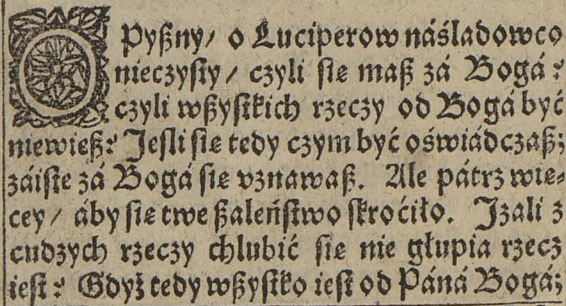 O Pyßny/ o Luciperow náśladowco
nieczysty/ czyli się maß zá Bogá?
czyli wßystkich rzeczy od Bogá być
niewieß? Jesli się tedy czym być oświádczaß;
záiste zá Bogá się vznawaß. Ale pátrz wie⸗
cey/ áby się twe ßaleństwo skroćiło. Jzali z
cudzych rzeczy chlubić się nie głupia rzecz
iest? Gdyż tedy wßystko iest od Páná Bogá;